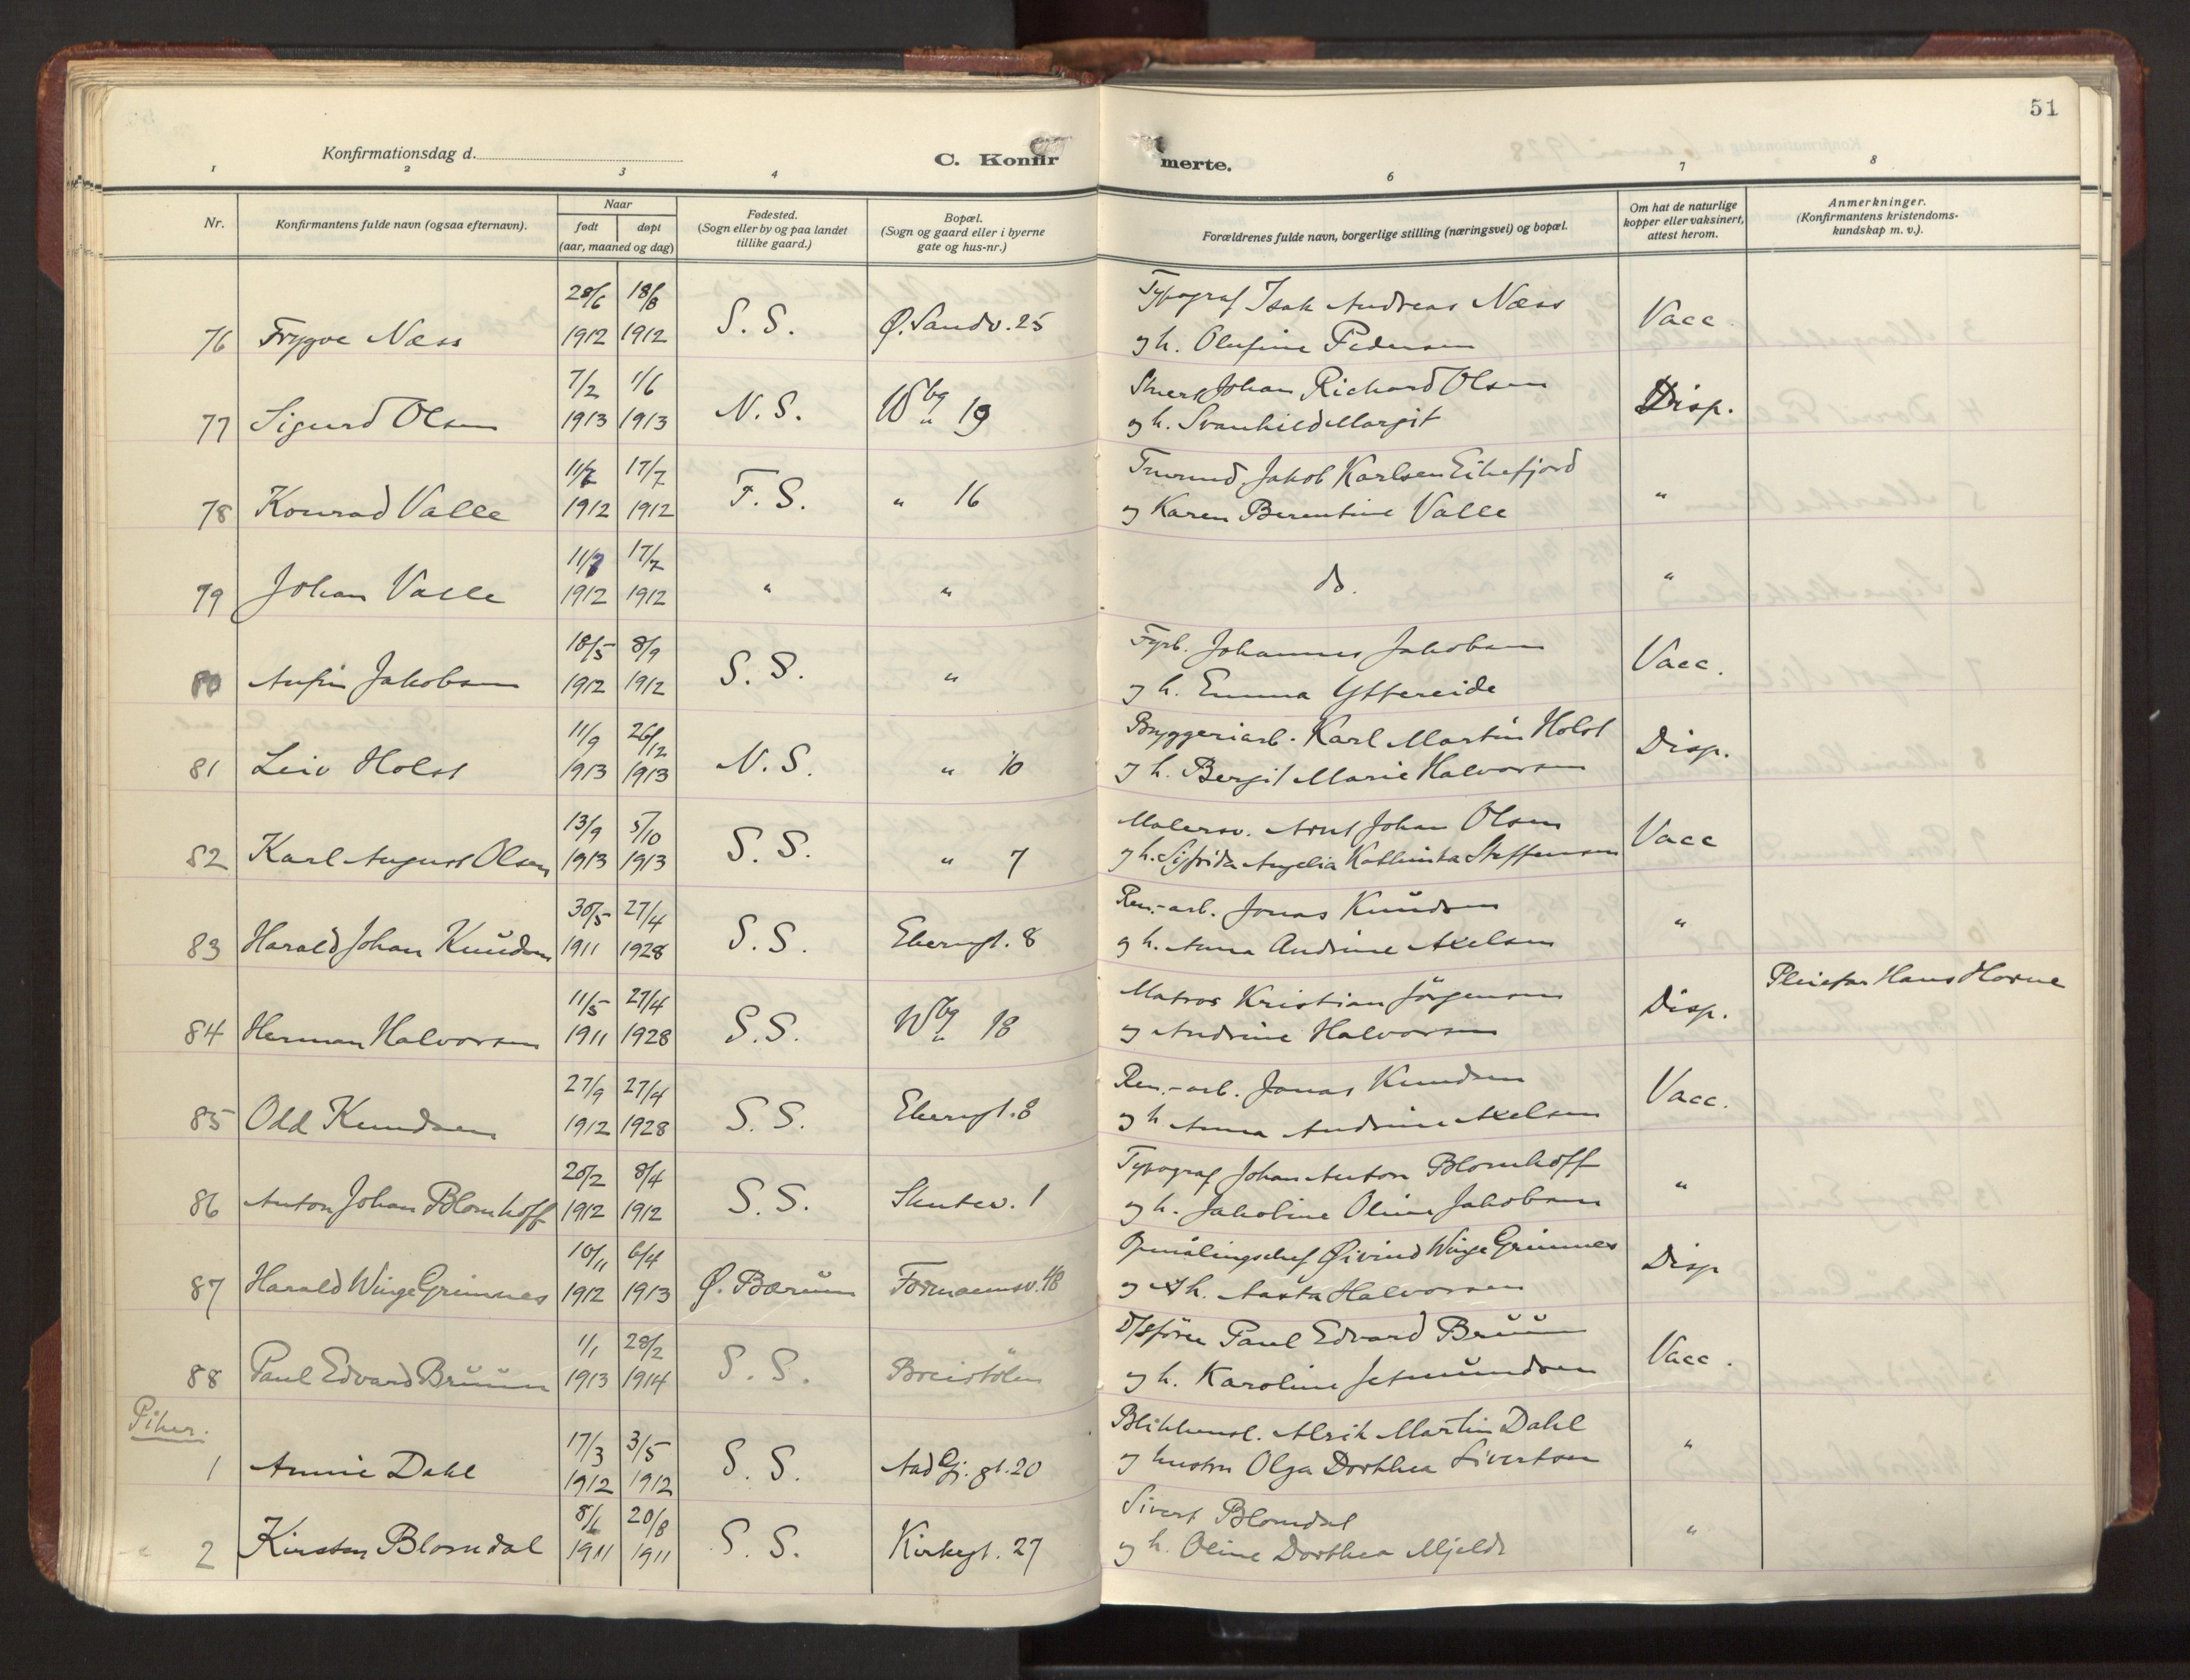 51
Konfirmationsdag d.
C. Konfirmerte.
1 2 3 4 6 7 8
Nr.
Konfirmantens fulde navn (ogsaa efternavn).
Naar
født døpt
(aar, maaned og dag)
Fødested.
(Sogn eller by og paa landet
tillike gaard.)
Bopæl.
(Sogn og gaard eller i byerne
gate og hus-nr.)
Forældrenes fulde navn, borgerlige stilling (næringsvei) og bopæl.
Om hat de naturlige
kopper eller vaksinert,
attest herom.
Anmerkninger.
(Konfirmantens kristendoms-
kundskap m. v.).
28/6 18/8 Typograf Isak Andreas Næss
76 Trygve Næss 1912 1912 S. S. Ø. Sandv. 25 og h. Olufine Pedersen Vacc.
7/2 1/6 Johan Richard Olsen
77 Sigurd Olsen 1913 1913 N. S. Wbg " 19 og h. Svanhild Margit Disp.
11/7 17/7 Jakob Karlsen Eikefjord
78 Konrad Valle 1912 1912 F. S. " 16 og Karen Berentine Valle "
11/7 17/7
79 Johan Valle 1912 1912 " " do. "
18/5 8/9 Fyrb. Johannes Jakobsen
80 Anfin Jakobsen 1912 1912 S. S. " og h. Emma Yttereide Vacc.
11/9 26/12 Bryggeriarb. Karl Martin Holst
81 Leiv Holst 1913 1913 N. S. " 10 og h. Bergit Marie Halvorsen Disp.
13/9 5/10 Malersv. Arnt Johan Olsen
82 Karl August Olsen 1913 1913 S. S. " 7 og h. Sigfrida Angelia Steffensen Vacc
30/5 27/4 Ren.-arb. Jonas Knudsen
83 Harald Johan Knudsen 1911 1928 S. S. 8 og h. Anna Andrine Axelsen "
11/5 27/4 Matros Kristian Jörgensen Pleiefar Hans Horne
84 Herman Halvorsen 1911 1928 S. S. Wbg " 18 og Andrine Halvorsen Disp.
27/9 27/4 Ren.-arb. Jonas Knudsen
85 Odd Knudsen 1912 1928 S. S. 8 og h Anna Andrine Axelsen Vacc.
20/2 8/4 Typograf Johan Anton Blomhoff
86 Anton Johan Blomhoff 1912 1912 S. S. Skutev. 1 og h. Jakobine Oline Jakobsen "
10/11 6/4 Opmålingschef Øivind Winge Grimnes
87 Harald Winge Grimnes 1912 1913 Ø. Bærum Formannsv. 48 og h. Aasta Halvorsen Disp
1/1 28/2 D/sfører Paul Edvard Bruun
88 Paul Edvard Bruun 1913 1914 S. S. Breistölen og h. Karoline Vacc.
Piker.
17/3 3/5 Alrik Martin Dahl
1 Annie Dahl 1912 1912 S. S. Aad Gj. gt. 20 og hustru Olga Dorthea Sivertsen "
8/6 20/8 Sivert Blomdal
2 Kirsten Blomdal 1911 1911 S. S. Kirkegt. 27 og h. Oline Dorthea Mjelde "